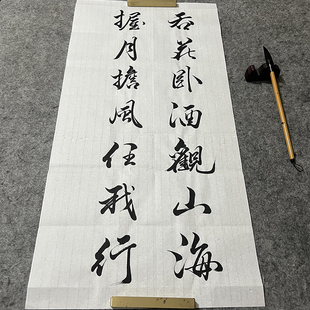 吞花卧酒觀山海
握月擔風任我行